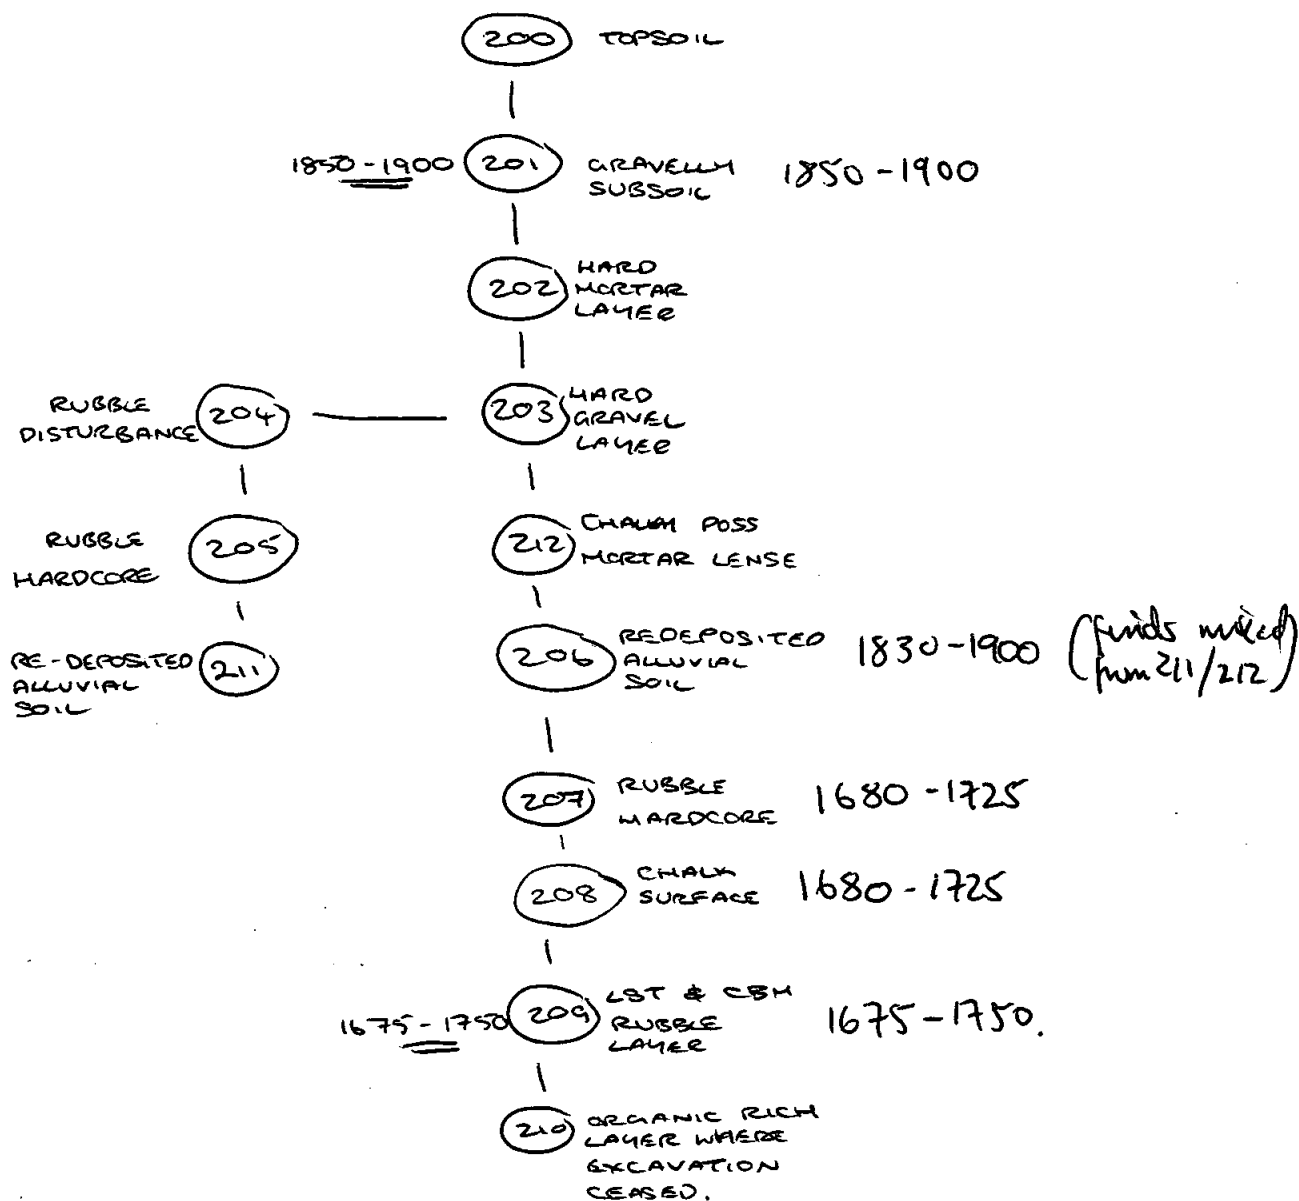 200 TOPSOIL
1850-1900 201 GRAVELLY
SUBSOIL 1850-1900
202 HARD
MORTAR
LAYER
RUBBLE
DISTURBANCE 204
203 HARD
GRAVEL
LAYER
RUBBLE
HARDCORE 205
212 CHALKY POSS
MORTAR LENSE
RE-DEPOSITED
ALLUVIAL
SOIL 211
206 REDEPOSITED
ALLUVIAL
SOIL
1830-1900 (finds mixed
from 211/212)
207 RUBBLE
HARDCORE 1680-1725
208 CHALK
SURFACE 1680-1725
1675-1750 209 LST & CBM
RUBBLE
LAYER
1675-1750.
210 ORGANIC RICH
LAYER WHERE
EXCAVATION
CEASED.